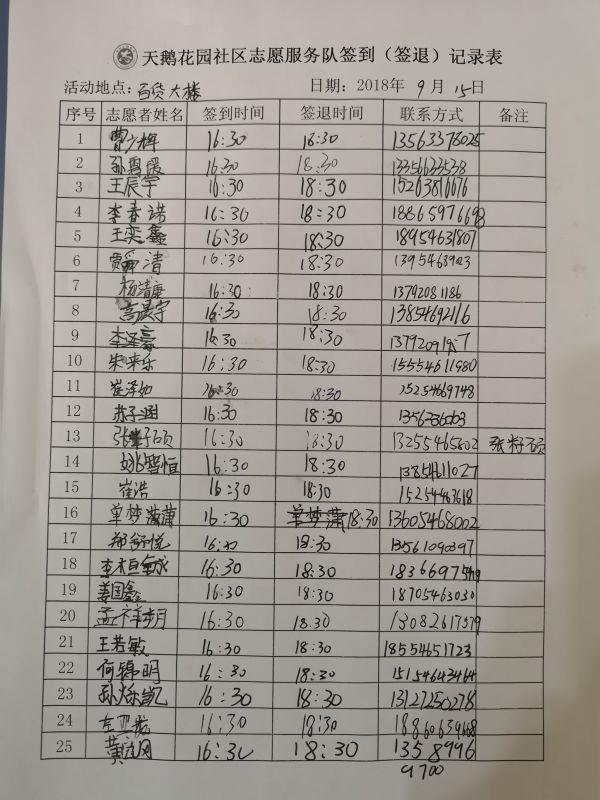 天鹅花园社区志愿服务队签到（签退）记录表
活动地点：百货大楼 日期：2018年 9月 15日
序号 志愿者姓名 签到时间 签退时间 联系方式 备注
1 曹少辉 16:30 18:30 13563378025
2 孙 16:30 18:30 13356633538
3 王辰宇 16:30 18:30 15263816676
4 李春诺 16:30 18:30
5 王奕鑫 16:30 18:30 18954631807
6 清 16:30 18:30
7 杨清康 16:30 18:30 13792081186
8 高晨宇 16:30 18:30 13854692116
9 李泽豪 16:30 18:30
10 朱来乐 16:30 18:30 15554611980
11 崔泽如 16:30 18:30 15254669748
12 苏子涵 16:30 18:30
13 张籽硕 16:30 18:30 13255465802 张籽硕
14 姚智恒 16:30 18:30 13854611027
15 崔浩 16:30 18:30 15254463618
16 单梦潇 16:30 单梦潇 18:30 13605468002
17 郑舒悦 16:30 18:30 13561090397
18 李恒 16:30 18:30
19 姜国鑫 16:30 18:30 18705463030
20 孟祥 16:30 18:30 13082617579
21 王若敏 16:30 18:30 18554651723
22 何锦明 16:30 18:30 15154643464
23 孙烁凯 16:30 18:30 13127250278
24 左亚龙 16:30 18:30 18860639668
25 黄 16:30 18:30 1358996
9700